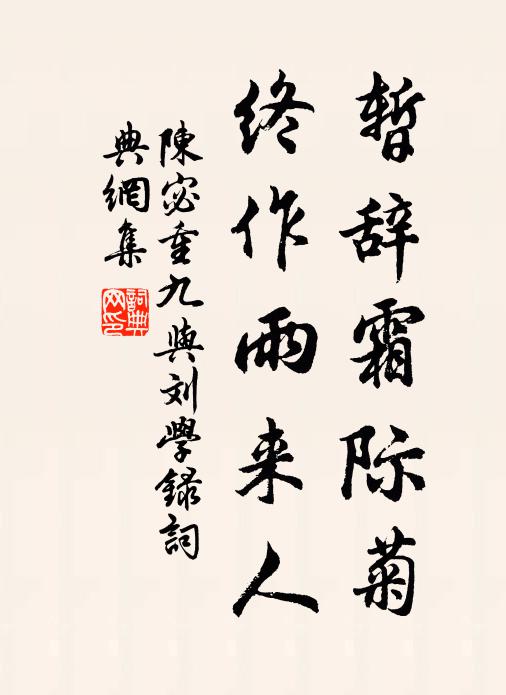 暫辞霜际菊
终作雨来人
陳宓重九與刘學録詞
典網集
詞典
网印